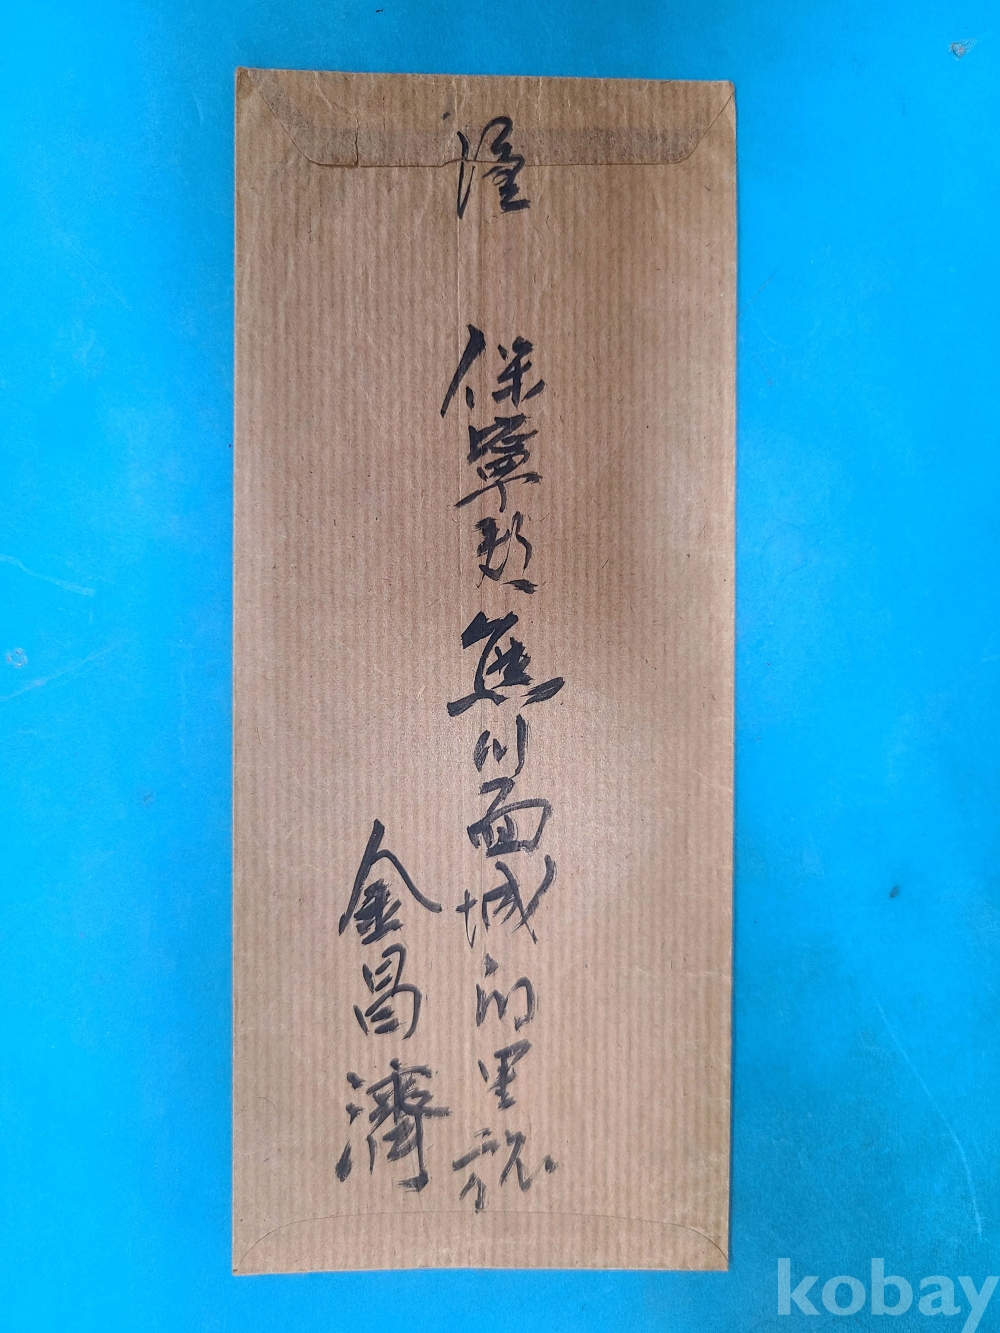 謹
保寧郡熊川面城內里
金昌濟
kobay